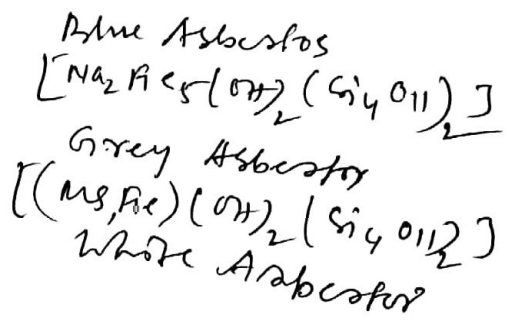 Blue Asbestos
[Na₂Fe₅(OH)₂(Si₄O₁₁)₂]
Grey Asbestos
[(Mg,Fe)(OH)₂(Si₄O₁₁)₂]
White Asbestos